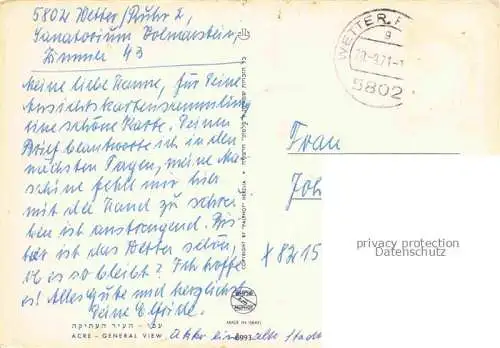 5802 Wetter/Ruhr 2,
Sanatorium Volmarstein,
Zimmer 43
Meine liebe Hanne, für Deine
Ansichtskartensammlung
eine schöne Karte. Deinen
Brief beantworte ich in den
nächsten Tagen, meine Ma-
schine fehlt mir hier
mit der Hand zu schrei-
ben ist anstrengend. Bis-
her ist das Wetter schön,
ob es so bleibt? Ich hoffe
es! Alles Gute und herzlichst
Deine Elfride.
עכו - העיר העתיקה
ACRE - GENERAL VIEW
Akko eine alte Stadt
COPYRIGHT BY "PALPHOT" HERZLIA
MADE IN ISRAEL
8993
WETTER, R
g
71-1
5802
Frau
Joh
privacy protection
Datenschutz
X 8215